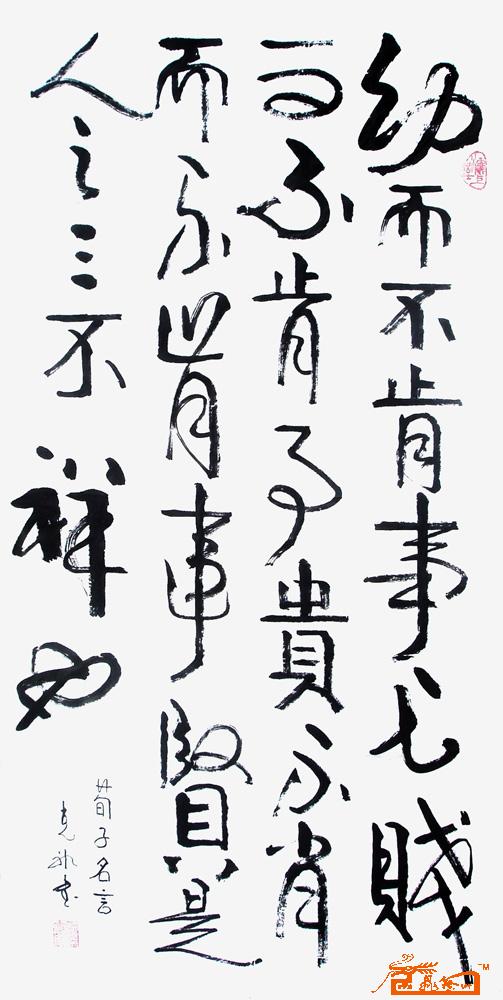 幼而不肯事长賤
而不肯事貴不肖
而不肯事賢是
人之三不祥也
荀子名言